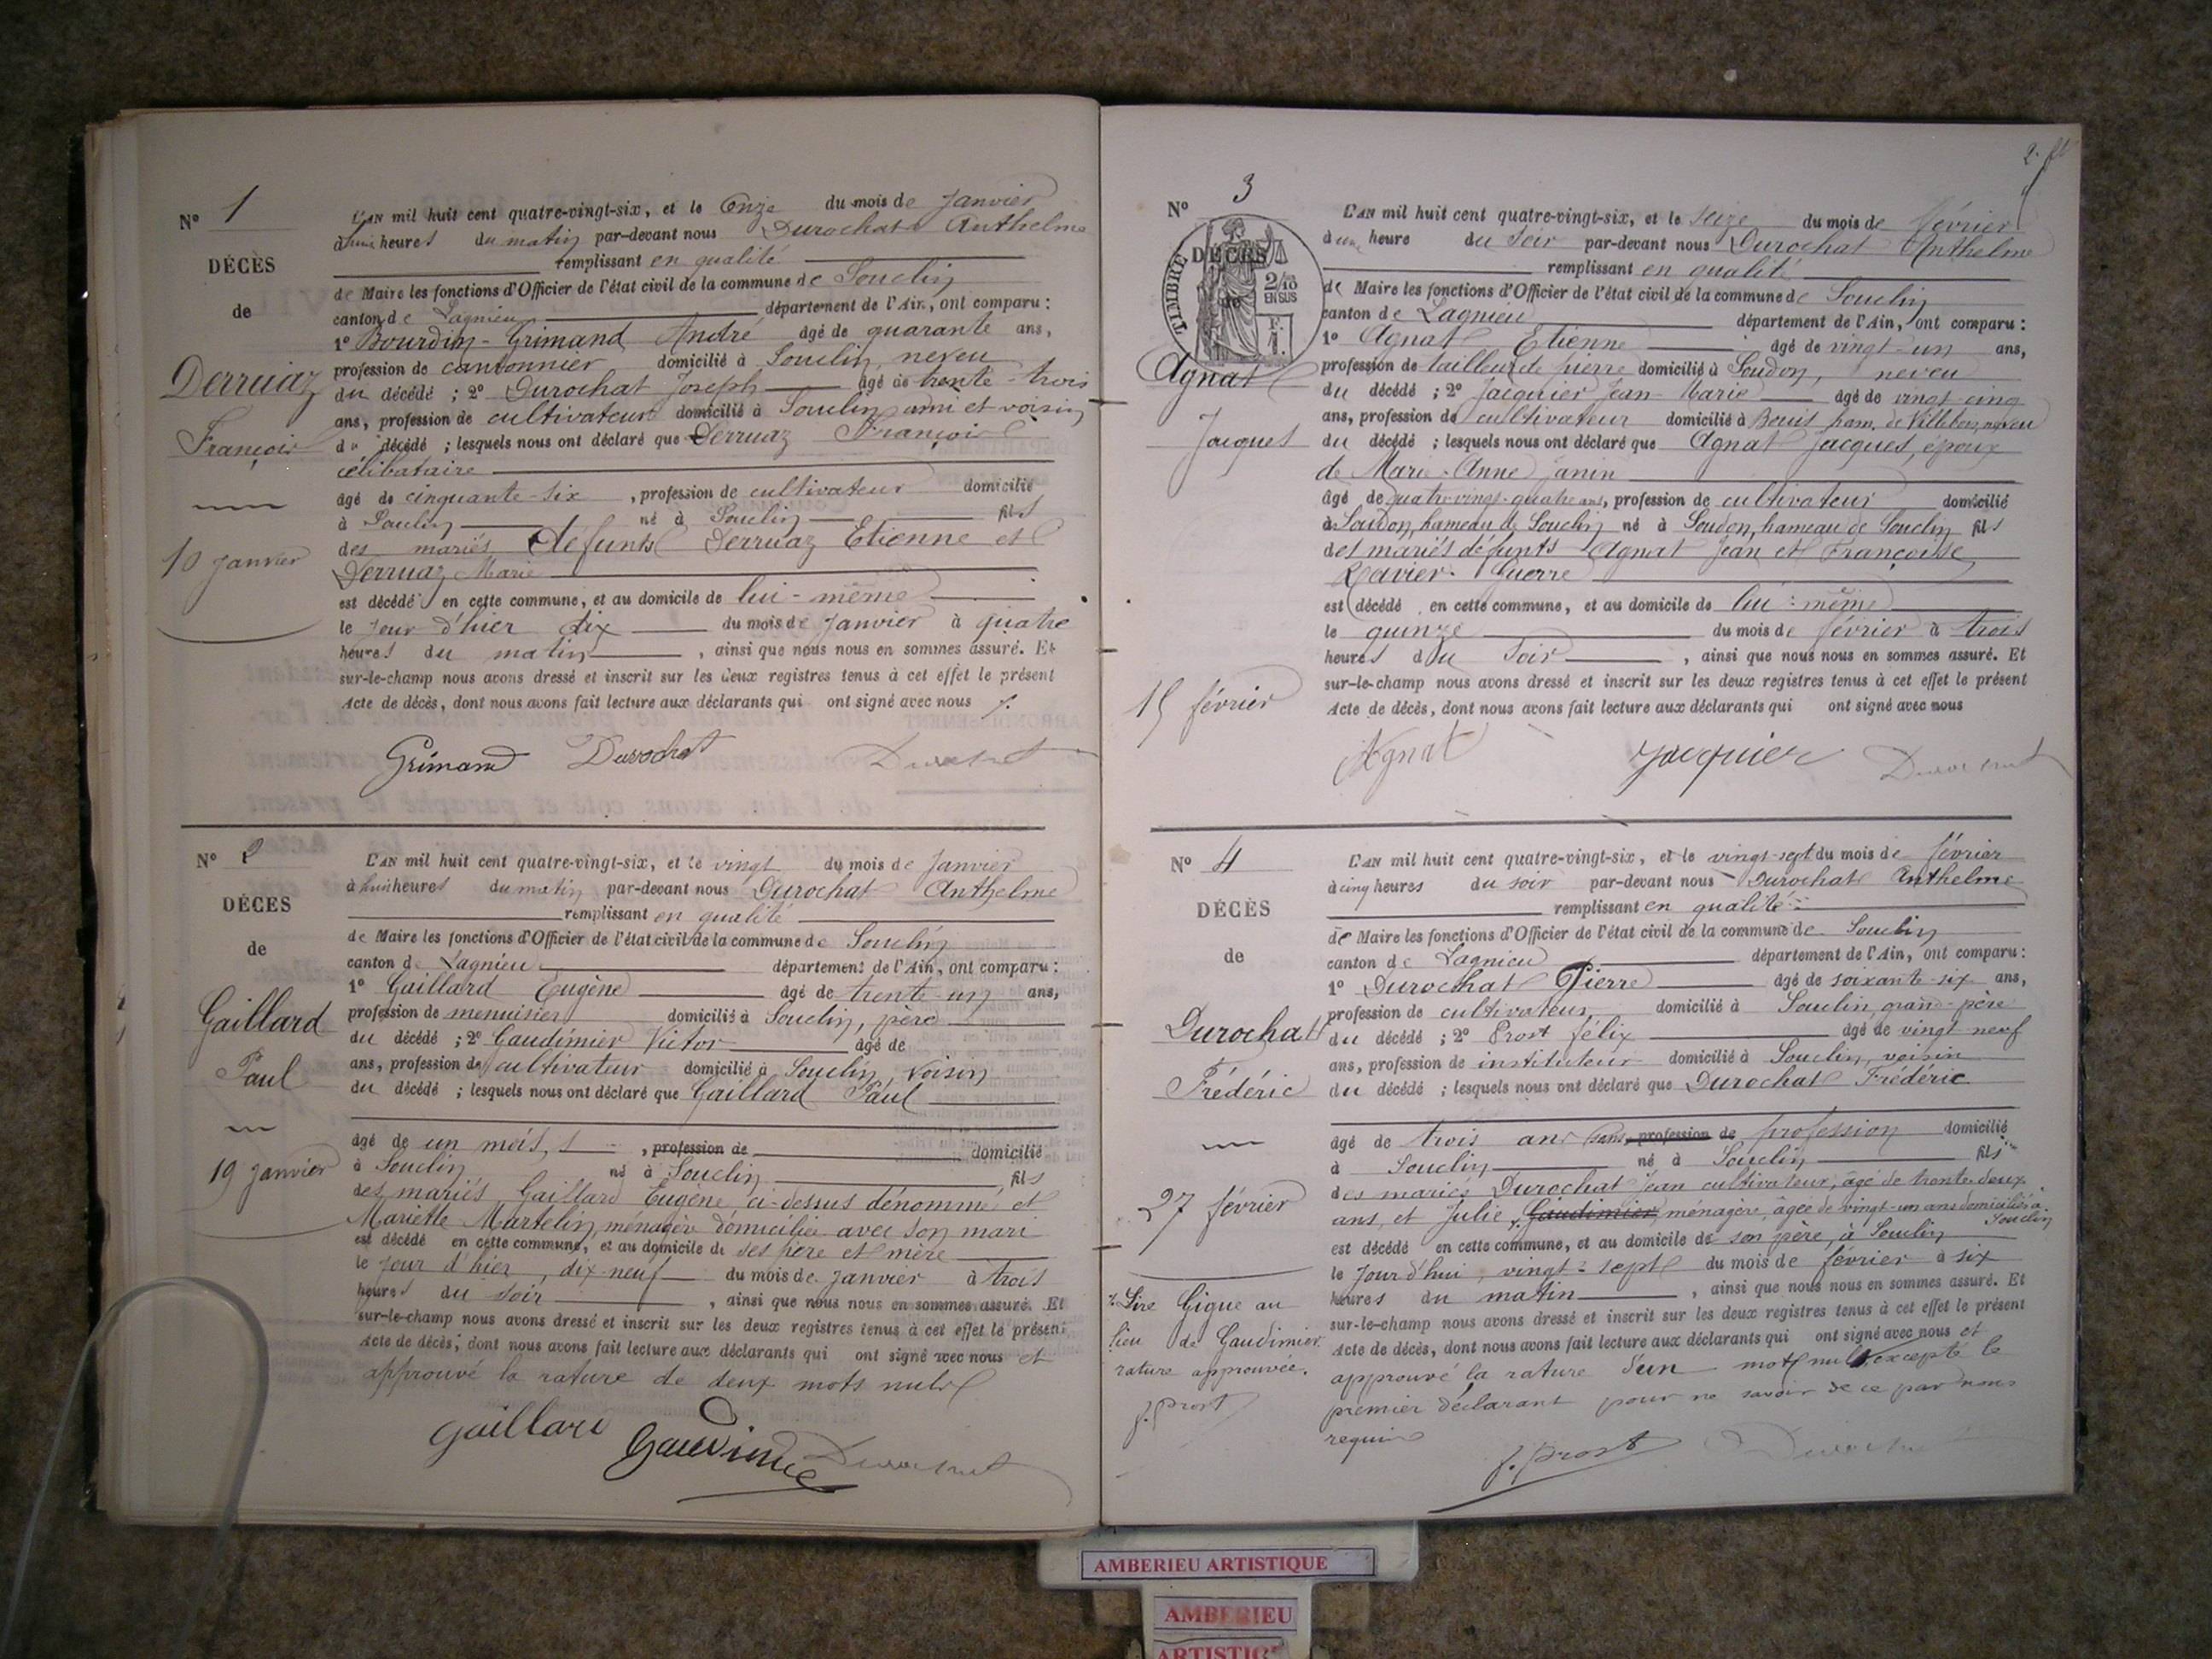 N° 1
DÉCÈS
de
Derruaz
François
10 Janvier
L'AN mil huit cent quatre-vingt-six, et le Onze du mois de Janvier
à huit heures du matin par-devant nous Durochat Anthelme
remplissant en qualité
de Maire les fonctions d'Officier de l'état civil de la commune de Souclin
canton de Lagnieu département de l'Ain, ont comparu :
1° Bourdin-Grimand André âgé de quarante ans,
profession de cantonnier domicilié à Souclin, neveu
du décédé ; 2° Durochat Joseph âgé de trente-trois
ans, profession de cultivateur domicilié à Souclin ami et voisin
du décédé ; lesquels nous ont déclaré que Derruaz François
célibataire
âgé de cinquante-six , profession de cultivateur domicilié
à Souclin né à Souclin fils
des mariés défunts Derruaz Etienne et
Derruaz Marie
est décédé en cette commune, et au domicile de lui-même
le jour d'hier dix du mois de Janvier à quatre
heures du matin , ainsi que nous nous en sommes assuré. Et
sur-le-champ nous avons dressé et inscrit sur les deux registres tenus à cet effet le présent
Acte de décès, dont nous avons fait lecture aux déclarants qui ont signé avec nous
Grimand Durochat Durochat
N° 2
DÉCES
de
Gaillard
Paul
19 Janvier
L'AN mil huit cent quatre-vingt-six, et le vingt du mois de Janvier
à huit heures du matin par-devant nous Durochat Anthelme
remplissant en qualité
de Maire les fonctions d'Officier de l'état civil de la commune de Souclin
canton de Lagnieu département de l'Ain, ont comparu :
1° Gaillard Eugène âgé de trente-un ans,
profession de menuisier domicilié à Souclin, père
du décédé ; 2° Gaudimier Victor âgé de
ans, profession de cultivateur domicilié à Souclin, voisin
du décédé ; lesquels nous ont déclaré que Gaillard Paul
âgé de un mois, , profession de domicilié
à Souclin né à Souclin fils
des mariés Gaillard Eugène ci-dessus dénommé et
Mariette Martelin, ménagère domiciliée avec son mari
est décédé en cette commune, et au domicile de ses père et mère
le jour d'hier, dix-neuf du mois de Janvier à trois
heures du soir , ainsi que nous nous en sommes assuré. Et
sur-le-champ nous avons dressé et inscrit sur les deux registres tenus à cet effet le présent
Acte de décès, dont nous avons fait lecture aux déclarants qui ont signé avec nous et
approuvé la rature de deux mots nuls
Gaillard Gaudimier Durochat
2.
N° 3
TIMBRE
DÉCÈS
de
2/10
EN SUS
F.
1.
Agnat
Jacques
15 février
L'AN mil huit cent quatre-vingt-six, et le seize du mois de février
à une heure du soir par-devant nous Durochat Anthelme
remplissant en qualité
de Maire les fonctions d'Officier de l'état civil de la commune de Souclin
canton de Lagnieu département de l'Ain, ont comparu :
1° Agnat Etienne âgé de vingt-un ans,
profession de tailleur de pierre domicilié à Soudon, neveu
du décédé ; 2° Jacquier Jean-Marie âgé de vingt-cinq
ans, profession de cultivateur domicilié à Bouis ham. de Villebois, neveu
du décédé ; lesquels nous ont déclaré que Agnat Jacques, époux
de Marie-Anne Janin
âgé de quatre-vingt-quatre ans, profession de cultivateur domicilié
à Soudon, hameau de Souclin né à Soudon, hameau de Souclin fils
des mariés défunts Agnat Jean et Françoise
Ravier-Guerre
est décédé en cette commune, et au domicile de lui-même
le quinze du mois de février à trois
heures du soir , ainsi que nous nous en sommes assuré. Et
sur-le-champ nous avons dressé et inscrit sur les deux registres tenus à cet effet le présent
Acte de décès, dont nous avons fait lecture aux déclarants qui ont signé avec nous
Agnat Jacquier Durochat
N° 4
DÉCÈS
de
Durochat
Frédéric
27 février
Lire Gigue au
lieu de Gaudimier.
rature approuvée.
f. Prost
L'AN mil huit cent quatre-vingt-six, et le vingt-sept du mois de février
à cinq heures du soir par-devant nous Durochat Anthelme
remplissant en qualité
de Maire les fonctions d'Officier de l'état civil de la commune de Souclin
canton de Lagnieu département de l'Ain, ont comparu :
1° Durochat Pierre âgé de soixante-six ans,
profession de cultivateur domicilié à Souclin, grand-père
du décédé ; 2° Prost félix âgé de vingt-neuf
ans, profession de instituteur domicilié à Souclin, voisin
du décédé ; lesquels nous ont déclaré que Durochat Frédéric
âgé de trois ans sans, profession de profession domicilié
à Souclin né à Souclin fils
des mariés Durochat Jean cultivateur, âgé de trente-deux
ans, et Julie Gaudimier, ménagère, âgée de vingt-un ans domiciliés à
Souclin
est décédé en cette commune, et au domicile de son père, à Souclin
le jour d'hui, vingt-sept du mois de février à six
heures du matin , ainsi que nous nous en sommes assuré. Et
sur-le-champ nous avons dressé et inscrit sur les deux registres tenus à cet effet le présent
Acte de décès, dont nous avons fait lecture aux déclarants qui ont signé avec nous et
approuvé la rature d'un mot nul, excepté le
premier déclarant pour ne savoir de ce par nous
requis
f. Prost Durochat
AMBERIEU ARTISTIQUE
AMBERIEU
ARTISTIQ